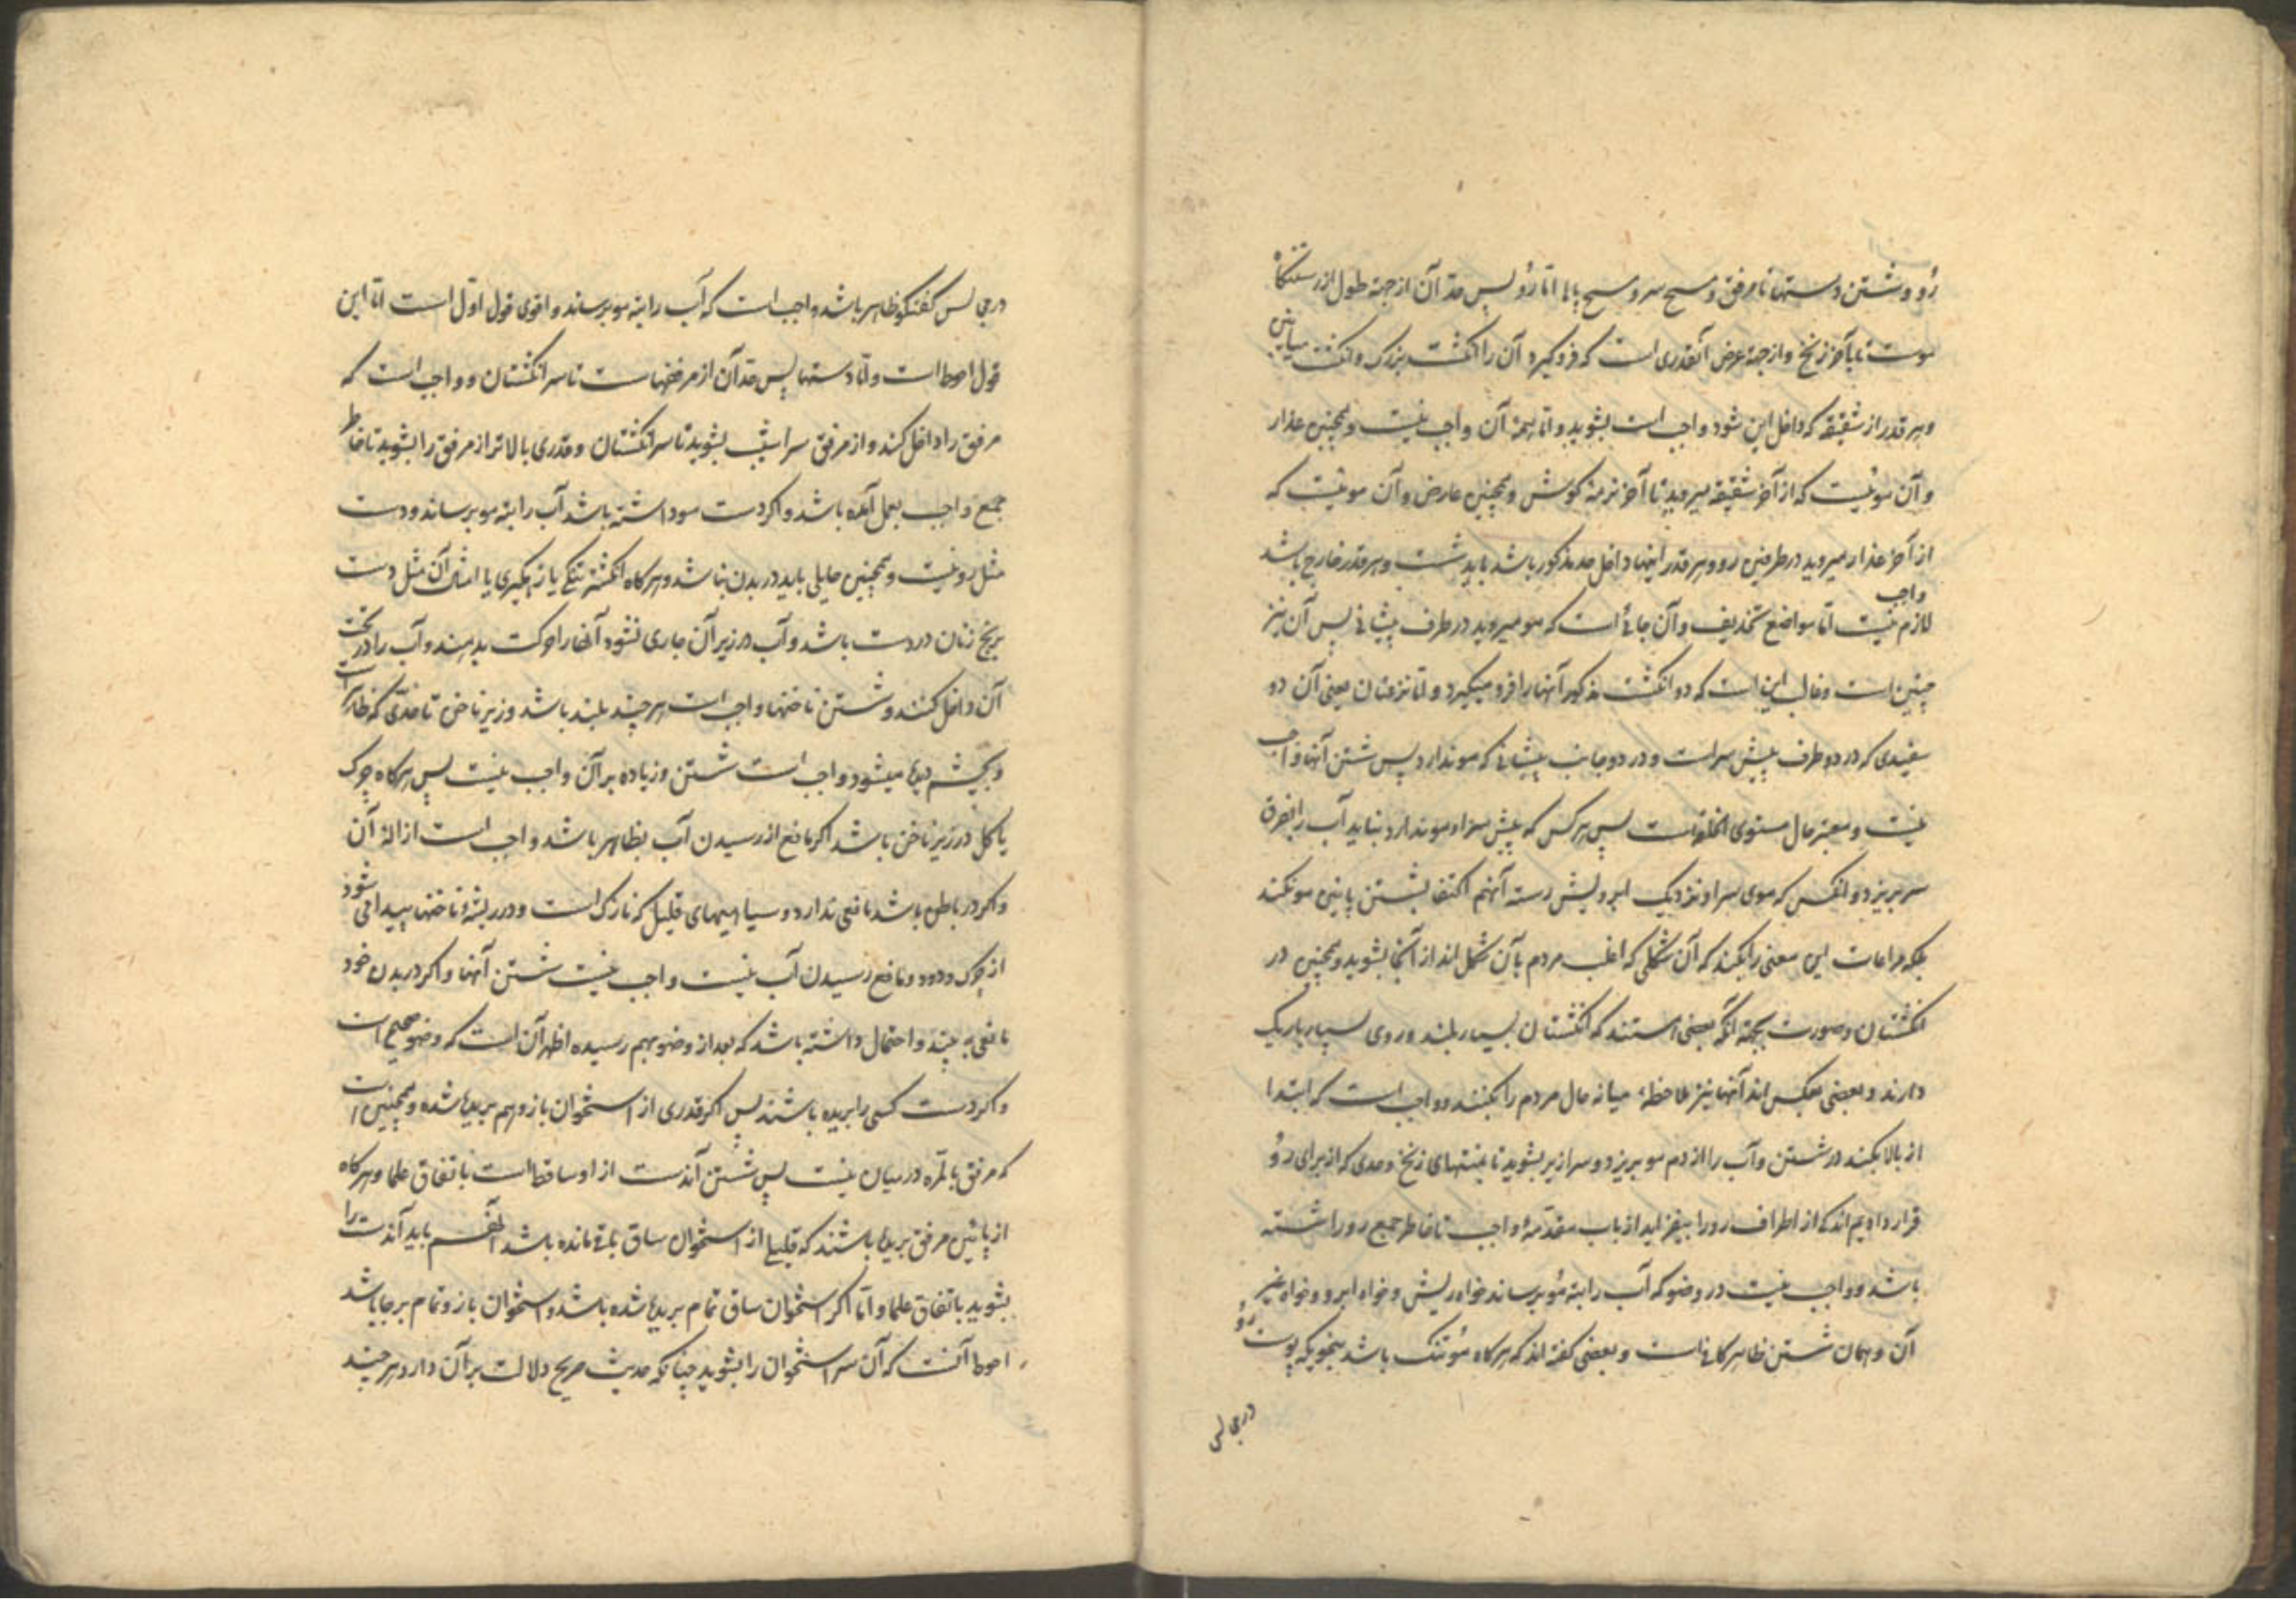 رو و شستن دستها تا مرفق و مسح سر و مسح پاها اما رو پس حد آن از جهة طول از رستنگاه
موست تا بآخر زنخ و از جهة عرض آنقدری است که فرو گیرد آن را انگشت بزرک و انگشت میانین
و هر قدر از شقیقه که داخل این شود واجب است بشوید و اما همهٔ آن واجب نیست و همچنین عذار
و آن موئیست که از آخر شقیقه میروید تا آخر نرمهٔ کوش و همچنین عارض و آن موئیست که
از آخر عذار میروید در طرفین رو و هر قدر اینها داخل حد مذکور باشد باید شست و هر قدر خارج باشد
واجب
لازم نیست اما مواضع تحذیف و آن جائی است که مو میروید در طرف پیشانی پس آن نیز
چنین است و غالب این است که دو انگشت مذکور آنها را فرو میگیرد و اما نزعتان یعنی آن دو
سفیدی که در دو طرف پیش سر است و در دو جانب پیشانی که مو ندارد پس شستن آنها واجب
نیست و معتبر حال مستوی الخلقه است پس هر کس که پیش سر او مو ندارد نباید آب را بفرق
سر بریزد و آنکس که موی سر او نزدیک ابرویش رسته آنهم اکتفا بشستن پایین مو نکند
بلکه مراعات این معنی را بکند که آن شکلی که اغلب مردم بآن شکل اند از آنجا بشوید و همچنین در
انگشتان و صورت بجهة آنکه بعضی هستند که انگشتان بسیار بلند و روی بسیار باریک
دارند و بعضی بعکس اند آنها نیز ملاحظهٔ میانه حال مردم را بکنند و واجب است که ابتدا
از بالا بکند در شستن و آب را از دم مو بریزد و سرازیر بشوید تا بمنتهای زنخ و حدی که از برای رو
قرار دادیم اندکی از اطراف رو را بیفزاید از باب مقدمهٔ واجب تا خاطر جمع رو را شسته
باشد و واجب نیست در وضو که آب را بته مو برساند خواه ریش و خواه ابرو و خواه غیر
آن و همان شستن ظاهر کافی است و بعضی گفته اند که هرکاه مو تنک باشد بنحویکه پوست رو
در مجالس
در مجالس گفتگو ظاهر باشد واجب است که آب را بته مو برساند و اقوی قول اول است اما این
قول احوط است و اما دستها پس حد آن از مرفقهاست تا سر انگشتان و واجب است که
مرفق را داخل کند و از مرفق سراشیب بشوید تا سر انگشتان و قدری بالاتر از مرفق را بشوید تا خاطر
جمع واجب بعمل آمده باشد و اکر دست مو داشته باشد آب را بته مو برساند و دست
مثل رو نیست و همچنین حایلی باید در بدن نباشد و هرکاه انگشتر تنگی یا زهگیری یا امثال آن مثل دست
برنج زنان در دست باشد و آب در زیر آن جاری نشود آنها را حرکت بدهند و آب را در تحت
آن داخل کنند و شستن ناخنها واجب است هر چند بلند باشد و زیر ناخن تا حدی که ظاهر است
و بچشم دیده میشود واجب است شستن و زیاده بر آن واجب نیست پس هرکاه چرک
یا کل در زیر ناخن باشد اکر مانع از رسیدن آب بظاهر باشد واجب است ازالهٔ آن
و اکر در باطن باشد مانعی ندارد و سیاهیهای قلیل که نازک است و در ریشهٔ ناخنها پیدا می شود
از چرک و دود و مانع رسیدن آب نیست واجب نیست شستن آنها و اکر در بدن خود
مانعی به بیند و احتمال داشته باشد که بعد از وضو بهم رسیده اظهر آن است که وضو صحیح است
و اکر دست کسی را بریده باشند پس اکر قدری از استخوان بازو هم بریده شده و همچنین است
که مرفق بالمره در میان نیست پس شستن آندست از او ساقط است باتفاق علما و هرکاه
از پائین مرفق بریده باشند که قلیلی از استخوان ساق باقی مانده باشد آنقسم باید آندست را
بشوید باتفاق علما و اما اکر استخوان ساق تمام بریده شده باشد و استخوان بازو تمام برجا باشد
احوط آنست که آن سر استخوان را بشوید چنانکه حدیث صریح دلالت بر آن دارد هر چند